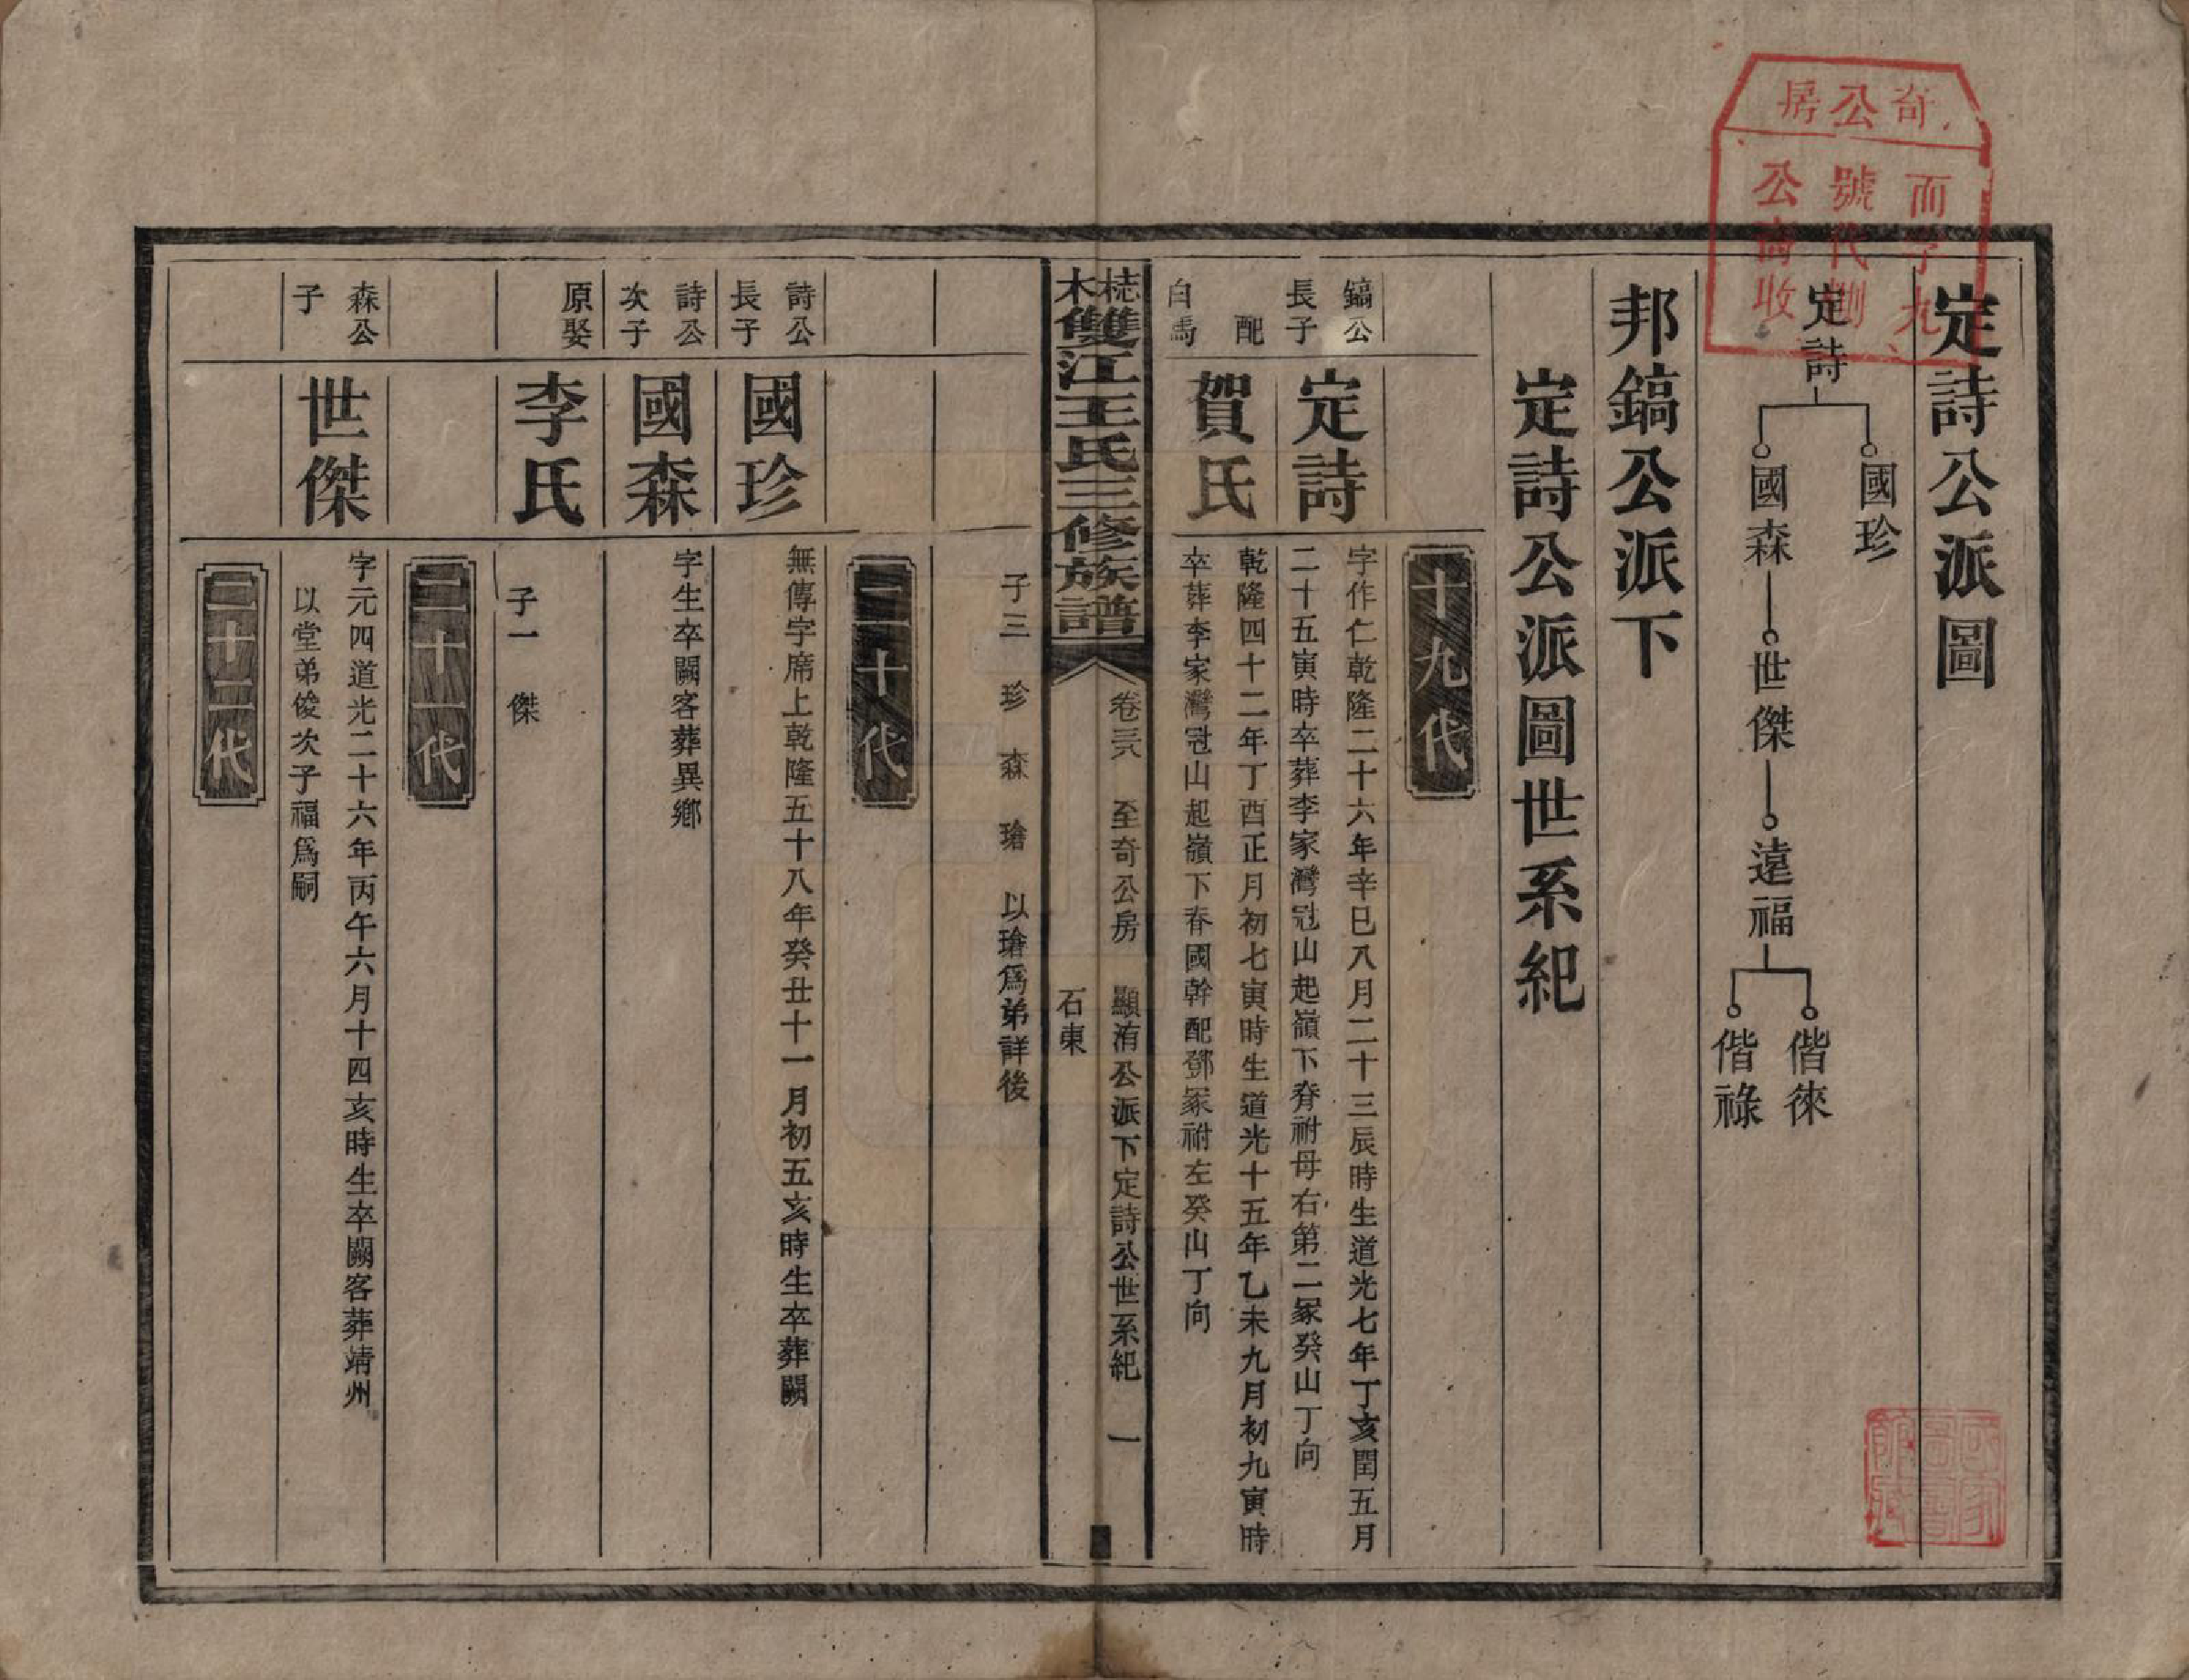 奇公房
而字九
號代
公收
定詩公派圖
定詩
國珍
國森
世傑
遠福
偕徠
偕祿
邦鎬公派下
定詩公派圖世系紀
十九代
鎬公
長子
定詩
字作仁乾隆二十六年辛巳八月二十三辰時生道光七年丁亥閏五月
二十五寅時卒葬李家灣冠山起嶺下脊祔母右第二冢癸山丁向
配
白馬
賀氏
乾隆四十二年丁酉正月初七寅時生道光十五年乙未九月初九寅時
卒葬李家灣冠山起嶺下脊國幹配鄧冢祔左癸山丁向
梽木雙江王氏三修族譜
卷三八
至奇公房
顯洧公派下定詩公世系紀
一
石東
子三 珍 森 瑲 以瑲爲弟詳後
二十代
詩公
長子
國珍
無傳字席上乾隆五十八年癸丑十一月初五亥時生卒葬闕
詩公
次子
國森
字生卒闕客葬異鄉
原娶
李氏
子一 傑
二十一代
森公
子
世傑
字元四道光二十六年丙午六月十四亥時生卒闕客葬靖州
以堂弟俊次子福爲嗣
二十二代